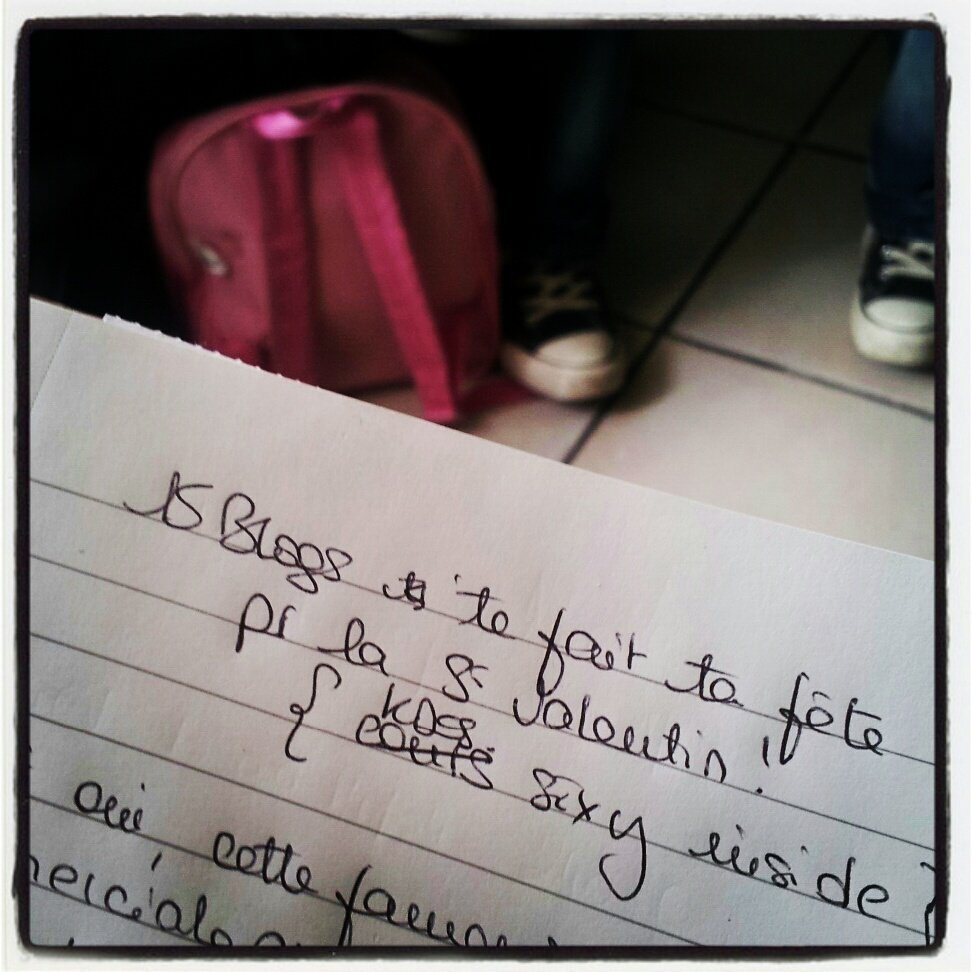 15 Blogs te fait ta fête
pr la St Valentin !
{ KDOS sexy inside }
oui cette fameu
merciale